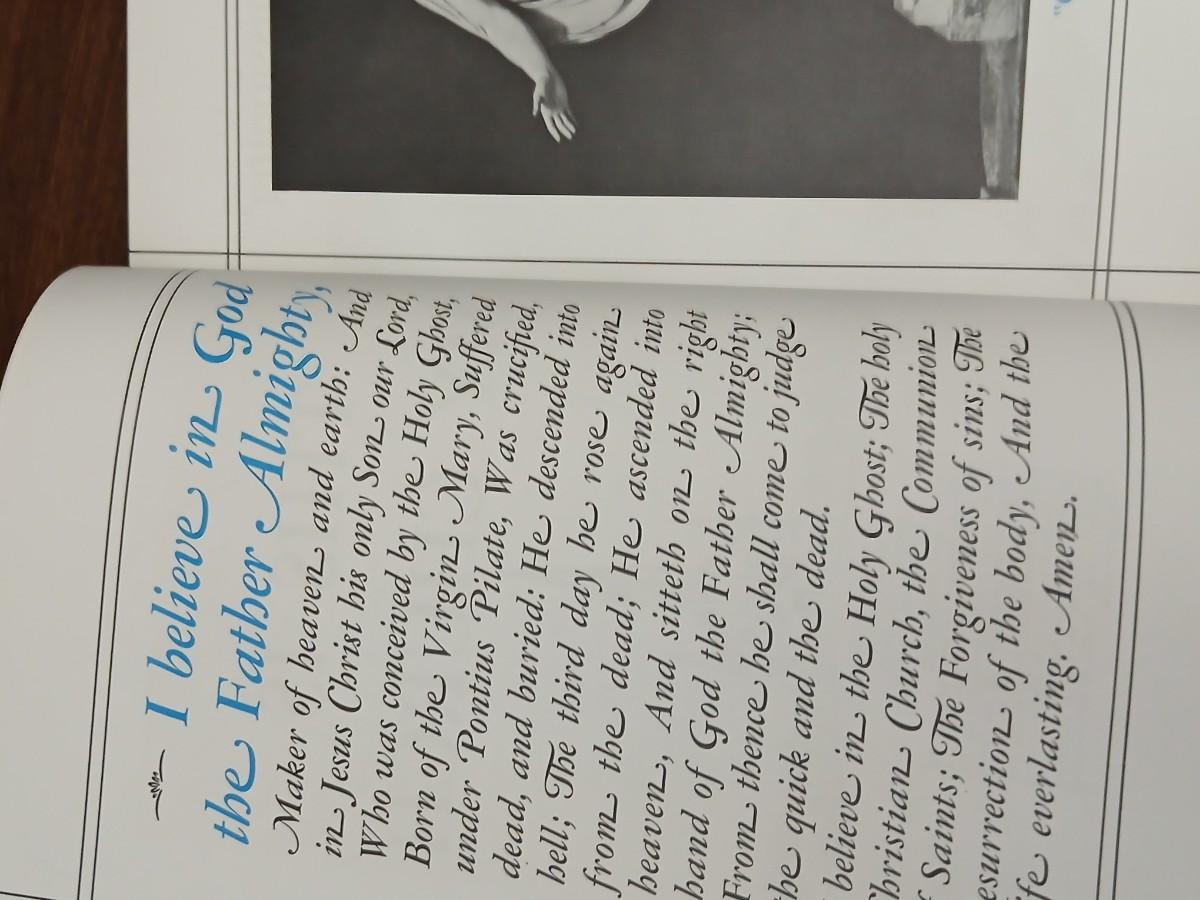 I believe in God
the Father Almighty,
Maker of heaven and earth: And
in Jesus Christ his only Son our Lord,
Who was conceived by the Holy Ghost,
Born of the Virgin Mary, Suffered
under Pontius Pilate, Was crucified,
dead, and buried: He descended into
hell; The third day he rose again
from the dead; He ascended into
heaven, And sitteth on the right
hand of God the Father Almighty;
From thence he shall come to judge
the quick and the dead.
believe in the Holy Ghost; The holy
hristian Church, the Communion
f Saints; The Forgiveness of sins; The
esurrection of the body, And the
ife everlasting. Amen.